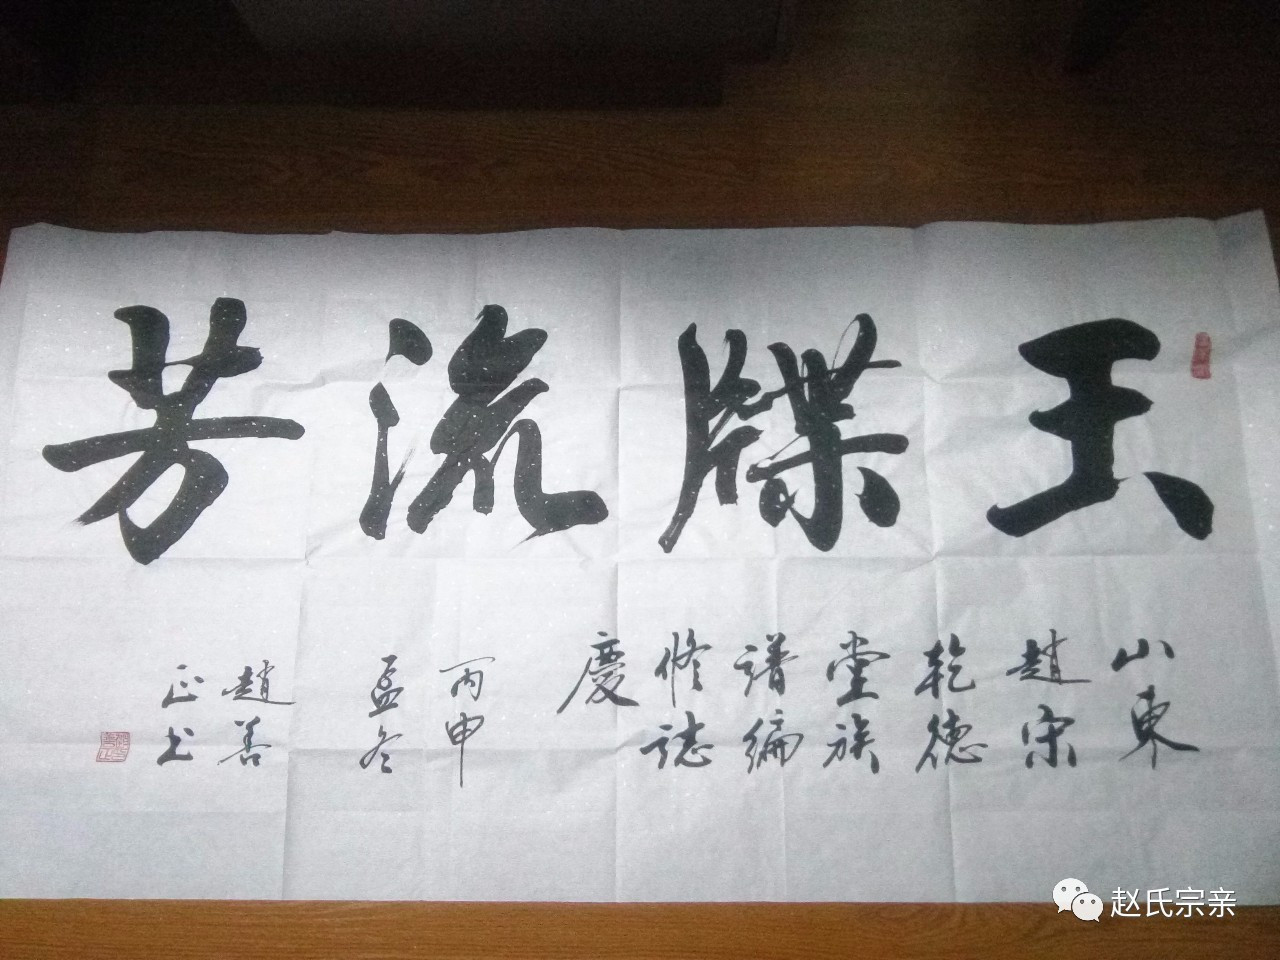 玉牒流芳
山東
趙宋
乾德
堂族
譜編
修誌
慶
丙申
孟冬
趙善
正书
赵氏宗亲